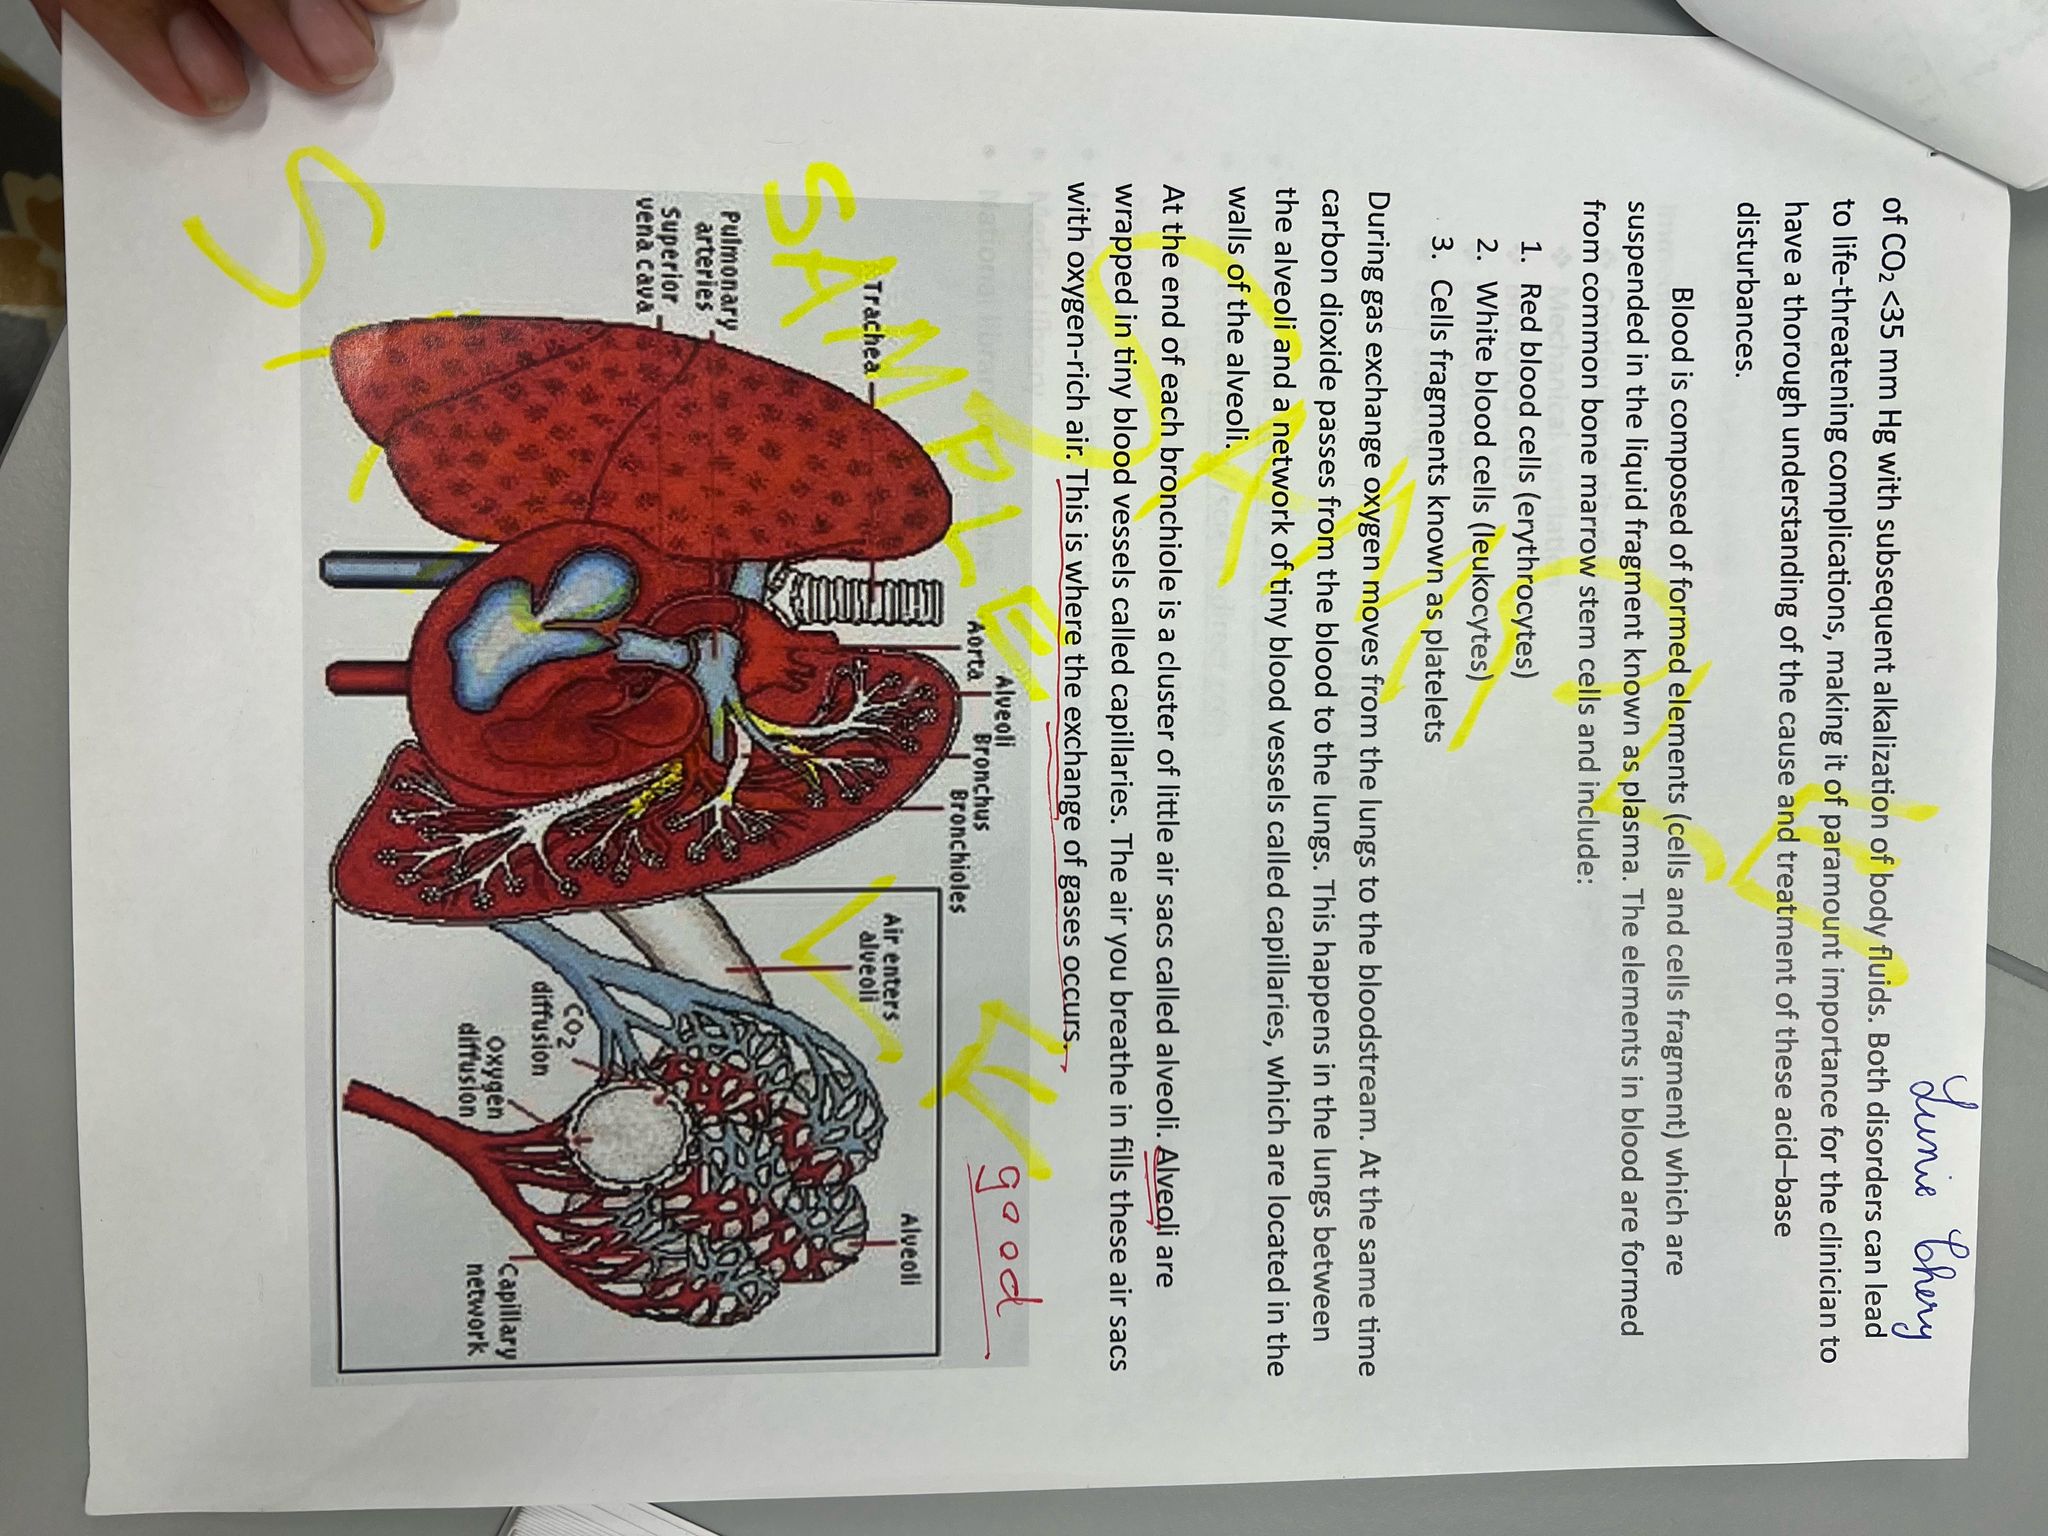 Lunie Chery
of CO₂ <35 mm Hg with subsequent alkalization of body fluids. Both disorders can lead
to life-threatening complications, making it of paramount importance for the clinician to
have a thorough understanding of the cause and treatment of these acid–base
disturbances.
Blood is composed of formed elements (cells and cells fragment) which are
suspended in the liquid fragment known as plasma. The elements in blood are formed
from common bone marrow stem cells and include:
1. Red blood cells (erythrocytes)
2. White blood cells (leukocytes)
3. Cells fragments known as platelets
During gas exchange oxygen moves from the lungs to the bloodstream. At the same time
carbon dioxide passes from the blood to the lungs. This happens in the lungs between
the alveoli and a network of tiny blood vessels called capillaries, which are located in the
walls of the alveoli.
At the end of each bronchiole is a cluster of little air sacs called alveoli. Alveoli are
wrapped in tiny blood vessels called capillaries. The air you breathe in fills these air sacs
with oxygen-rich air. This is where the exchange of gases occurs.
SAMPLE
SAMPLE
good
Trachea
Aorta
Alveoli
Bronchus
Bronchioles
Pulmonary
arteries
Superior
vena cava
Air enters
alveoli
Alveoli
CO₂
diffusion
Oxygen
diffusion
Capillary
network